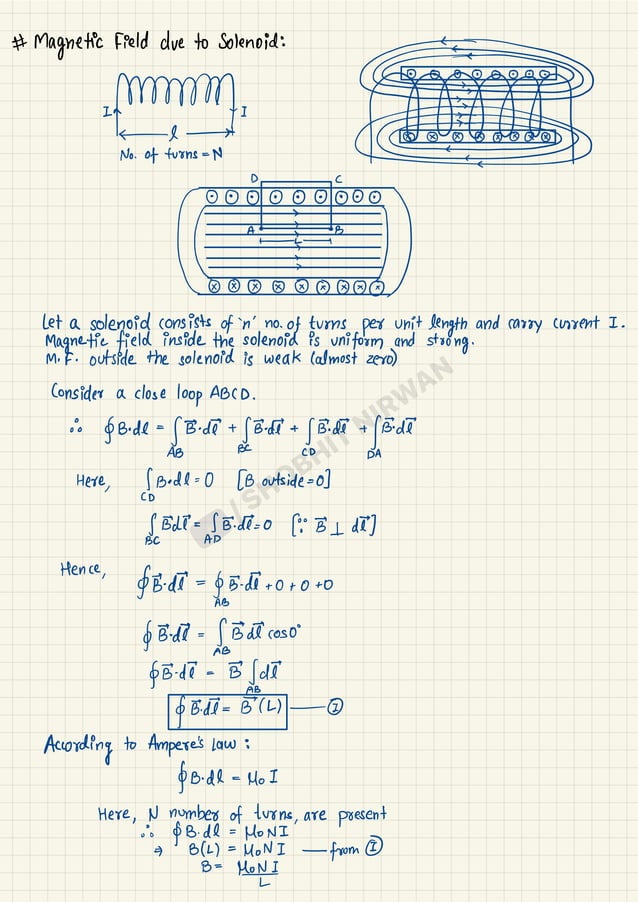 # Magnetic Field due to Solenoid:
I I
l
No. of turns = N
D C
A B
L
Let a solenoid consists of 'n' no. of turns per unit length and carry current I.
Magnetic field inside the solenoid is uniform and strong.
M.F. outside the solenoid is weak (almost zero)
Consider a close loop ABCD.
∴ ∮B·dl = ∫_AB B⃗·dl⃗ + ∫_BC B⃗·dl⃗ + ∫_CD B⃗·dl⃗ + ∫_DA B⃗·dl⃗
Here, ∫_CD B·dl = 0 [B outside = 0]
∫_BC B⃗dl⃗ = ∫_AD B⃗·dl⃗ = 0 [∵ B⃗ ⊥ dl⃗]
Hence, ∮B⃗·dl⃗ = ∮_AB B⃗·dl⃗ + 0 + 0 + 0
∮B⃗·dl⃗ = ∫_AB B⃗ dl⃗ cos0°
∮B⃗·dl⃗ = B⃗ ∫_AB dl⃗
∮B⃗·dl⃗ = B⃗(L) — ①
According to Ampere's Law :
∮B·dl = μ₀I
Here, N number of turns, are present
∴ ∮B·dl = μ₀NI
⇒ B(L) = μ₀NI — from ①
B = μ₀NI / L
/ SHOBHIT NIRWAN